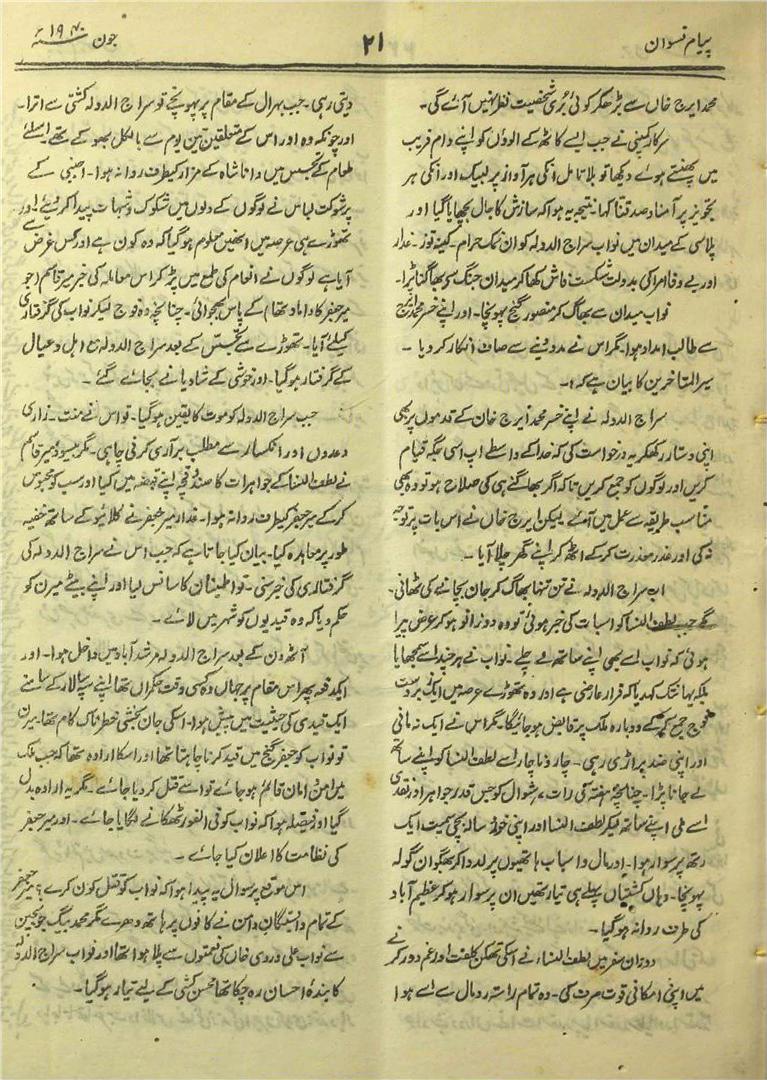 پیام نسواں
۲۱
جون ۱۹۴۰ء
محمد ایرج خاں سے بڑھکر کوئی بُری شخصیت نظر نہیں آئے گی۔
سرکار کمپنی نے جب ایسے کاٹھ کے الوؤں کو اپنے دام فریب
میں پھنستے ہوئے دیکھا تو بلا تامل انکی ہر آواز پر لبیک اور انکی ہر
تجویز پر آمنا و صدقنا کہا نتیجہ یہ ہوا کہ سازش کا جال بچھایا گیا اور
پلاسی کے میدان میں نواب سراج الدولہ کو ان نمک حرام۔ کینہ توز۔ غدار
اور بے وفا امرا کی بدولت شکست فاش کھا کر میدان جنگ سے بھاگنا پڑا۔
نواب میدان سے بھاگ کر منصور گنج پہونچا۔ اور اپنے خسر محمد ایرج
سے طالب امداد ہوا۔ مگر اس نے مدد دینے سے صاف انکار کر دیا۔
سیر المتاخرین کا بیان ہے کہ:۔
سراج الدولہ نے اپنے خسر محمد ایرج خان کے قدموں پر بھی
اپنی دستار رکھکر یہ درخواست کی کہ خدا کے واسطے اب اسی جگہ قیام
کریں اور لوگوں کو جمع کریں تاکہ اگر بھاگنے ہی کی صلاح ہو تو وہ بھی
مناسب طریقہ سے عمل میں آئے لیکن ایرج خاں نے اس بات پر توجہ
نہ کی اور عذر معذرت کر کے اٹھ کر اپنے گھر چلا آیا۔
اب سراج الدولہ نے تن تنہا بھاگ کر جان بچانے کی ٹھانی۔
جب لطف النسا کو اس بات کی خبر ہوئی تو وہ دوزانو ہو کر عرض پیرا
ہوئی کہ نواب اسے بھی اپنے ساتھ لے چلے۔ نواب نے ہر چند اسے سمجھایا
بلکہ یہانتک کہدیا کہ فرار عارضی ہے اور وہ تھوڑے عرصہ میں ایک زبردست
فوج جمع کر کے دوبارہ ملک پر قابض ہو جائیگا۔ مگر اس نے ایک نہ مانی
اور اپنی ضد پر اڑی رہی۔ چار و ناچار اسے لطف النسا کو اپنے ساتھ
لے جانا پڑا۔ چنانچہ ہفتہ کی رات ۷ شوال کو جس قدر جواہر اور نقدی
اسے ملی اپنے ساتھ لیکر لطف النسا اور اپنی خورد سالہ بچی سمیت ایک
رتھ پر سوار ہوا۔ اور مال و اسباب ہاتھیوں پر لدوا کر بھگوان گولہ
پہونچا۔ وہاں کشتیاں پہلے ہی تیار تھیں ان پر سوار ہو کر عظیم آباد
کی طرف روانہ ہو گیا۔
دوران سفر میں لطف النساء نے اسکی تھکن کلفت اور غم دور کرنے
میں اپنی امکانی قوت صرف کی۔ وہ تمام راستہ رومال سے اسے ہوا
دیتی رہی۔ جب بہرال کے مقام پر پہونچے تو سراج الدولہ کشتی سے اترا۔
اور چونکہ وہ اور اس کے متعلقین تین یوم سے بالکل بھوکے تھے اسلئے
طعام کے تجسس میں دانا شاہ کے مزار کیطرف روانہ ہوا۔ اجنبی کے
پر شوکت لباس نے لوگوں کے دلوں میں شکوک و شبہات پیدا کر دیئے اور
تھوڑے ہی عرصہ میں انھیں معلوم ہو گیا کہ وہ کون ہے اور کس غرض سے
آیا ہے لوگوں نے انعام کی طمع میں پڑ کر اس معاملہ کی خبر میر قاسم (جو
میر جعفر کا داماد تھا) کے پاس بھجوائی۔ چنانچہ وہ فوج لیکر نواب کی گرفتاری
کیلئے آیا۔ تھوڑے سے تجسس کے بعد سراج الدولہ مع اہل و عیال
کے گرفتار ہو گیا۔ اور خوشی کے شادیانے بجائے گئے۔
جب سراج الدولہ کو موت کا یقین ہو گیا۔ تو اس نے منت۔ زاری
وعدوں اور انکسار سے مطلب برآری کرنی چاہی۔ مگر بیسود میر قاسم
نے لطف النسا کے جواہرات کا صندوقچہ اپنے قبضہ میں کیا اور سب کو محبوس
کر کے میر جعفر کیطرف روانہ ہوا۔ غدار میر جعفر نے کلائیو کے ساتھ خفیہ
طور پر معاہدہ کیا۔ بیان کیا جاتا ہے کہ جب اس نے سراج الدولہ کی
گرفتاری کی خبر سنی۔ تو اطمینان کا سانس لیا اور اپنے بیٹے میرن کو
حکم دیا کہ وہ قیدیوں کو شہر میں لائے۔
آٹھ دن کے بعد سراج الدولہ مرشد آباد میں داخل ہوا۔ اور
ایکدفعہ پھر اس مقام پر جہاں وہ کسی وقت حکمراں تھا اپنے سپہ سالار کے سامنے
ایک قیدی کی حیثیت میں پیش ہوا۔ اسکی جان بخشی خطرناک کام تھا۔ میرن
تو نواب کو جعفر گنج میں قید کرنا چاہتا تھا اور اسکا ارادہ تھا کہ جب ملک
میں امن و امان قائم ہو جائے تو اسے قتل کر دیا جائے۔ مگر یہ ارادہ بدل
گیا اور فیصلہ ہوا کہ نواب کو فی الفور ٹھکانے لگایا جائے۔ اور میر جعفر
کی نظامت کا اعلان کیا جائے۔
اس موقع پر سوال یہ پیدا ہوا کہ نواب کو قتل کون کرے؟ میر جعفر
کے تمام وابستگان دامن نے کانوں پر ہاتھ دھرے مگر محمد بیگ جو بچپن
سے نواب علی وردی خاں کی نعمتوں سے پلا ہوا تھا اور نواب سراج الدولہ
کا بندۂ احسان رہ چکا تھا محسن کشی کے لیے تیار ہو گیا۔